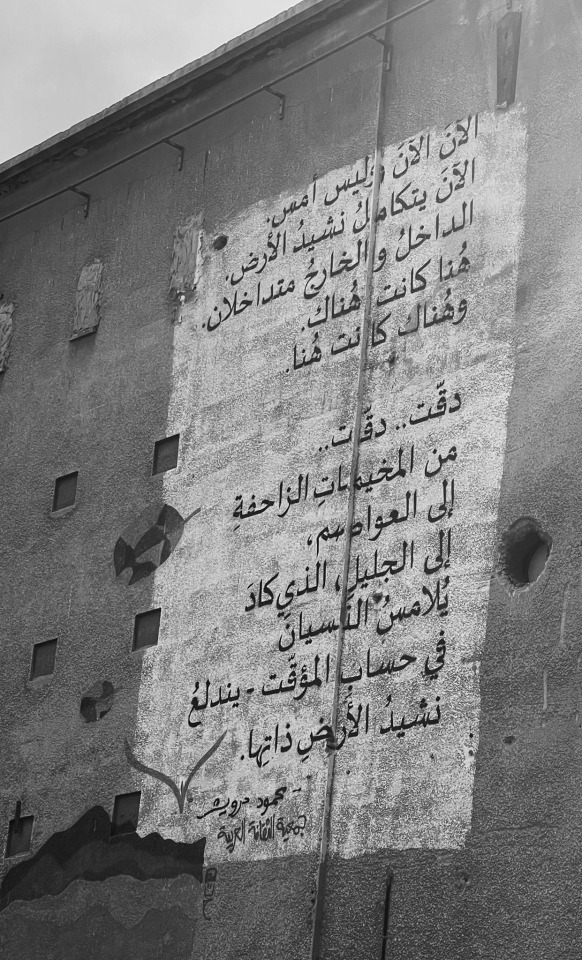 الآنَ الآنَ وليس أمس.
الآنَ يتكاملُ نشيدُ الأرض.
الداخلُ والخارجُ متداخلان.
هُنا كانت هُناك.
وهُناك كانت هُنا.
دقّت.. دقّات..
من المخيماتِ الزاحفةِ
إلى العواصم،
إلى الجليلِ، الذي كادَ
يُلامسُ النسيانَ
في حسابِ المؤقّت - يندلعُ
نشيدُ الأرضِ ذاتِها.
- محمود درويش
جمعية الثقافة العربية